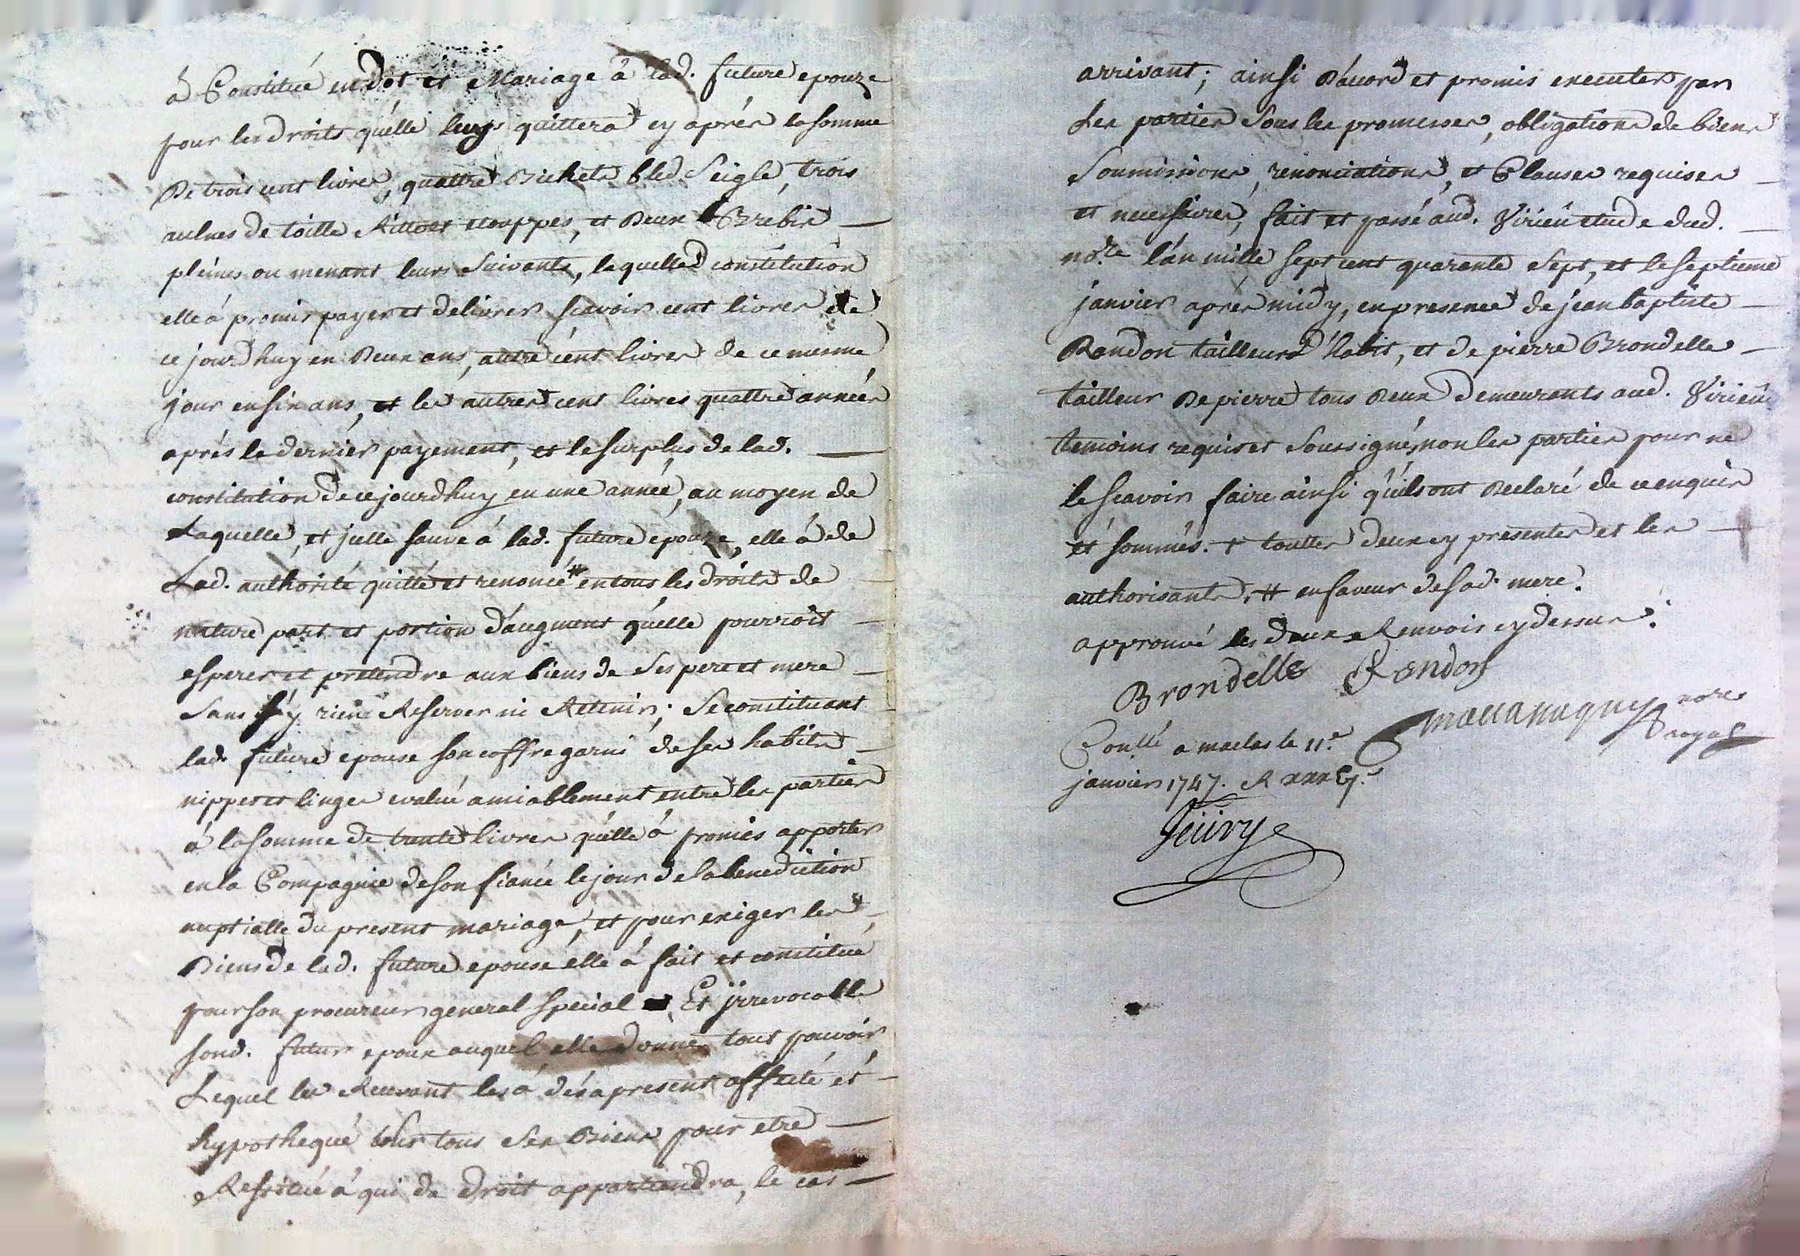 à Constitué en dot et Mariage à lad. future epouze
pour les droits qu'elle leurs quittera cy aprés la somme
De trois cent livres, quattre Bichets bled Seigle, trois
aulnes de toille Rittes etouppes, et Deux Brebis
pleines ou menant leurs Suivants, laquelle constitution
elle à promis payer et delivrer scavoir cent livres de
ce jourd'huy en Deux ans, autre cent livres de ce mesme
jour en six ans, et les autres cent livres quattre années
aprés le dernier payement, et le surplus de lad.
constitution de ce jourdhuy en une année, au moyen de
Laquelle, et jcelle sauve à lad. future epouze, elle à de
Lad. authorité quitté et renoncé # en tous les droits de
nature part et portion d'augment qu'elle pourroit
esperer et pretendre aux biens de Ses pere et mere
Sans s'y rien Reserver ni Retenir; Se constituant
lad. future epouse son coffre garni de ses habits
nippes et linges evalué amiablement entre les parties
à la somme de trente livres qu'elle à promis apporter
en la Compagnie de son fiancé le jour de la benediction
nuptialle du present mariage, et pour exiger les
Biens de lad. future epouse elle à fait et constitué
pour son procureur general special Et jrrevocable
sond. futur epoux auquel elle donne tout pouvoir
Lequel les Recevant les à dés apresent affecté et
hypothequé sur tous Ses Biens pour etre
Restitué à qui de droit appartiendra, le cas
arrivant; ainsi D'accord et promis executer par
Les parties Sous les promesses, obligations de biens
Soumissions, renonciations, et Clauses requises
et necessaires, fait et passé aud. Virieü etude dud.
nore. l'an mille sept cent quarante Sept, et le septieme
janvier aprés midy, en presence de jean baptiste
Randon tailleur d'habit, et de pierre Brondelle
tailleur De pierre tous Deux Demeurants aud. Virieü
temoins requis et Soussignés, non les parties pour ne
le scavoir faire ainsi qu'ils ont Declaré de ce enquis
et sommés. + touttes deux cy presentes et les
authorisants. # en faveur de sad. mere.
approuvé les deux Renvois cy dessus.
Brondelle Randon
nore
royal
Conllé a maclas le 11e.
janvier 1747. R